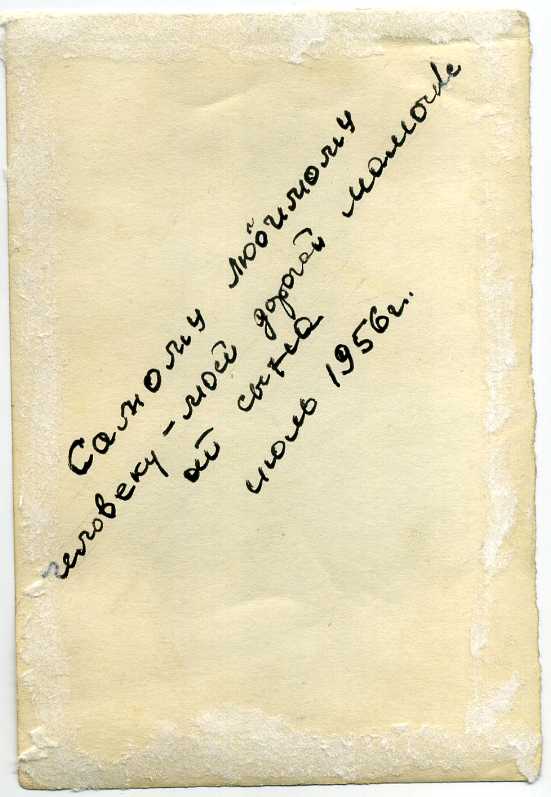 Самому любимому
человеку - моей дорогой мамочке
от сына
июль 1956 г.